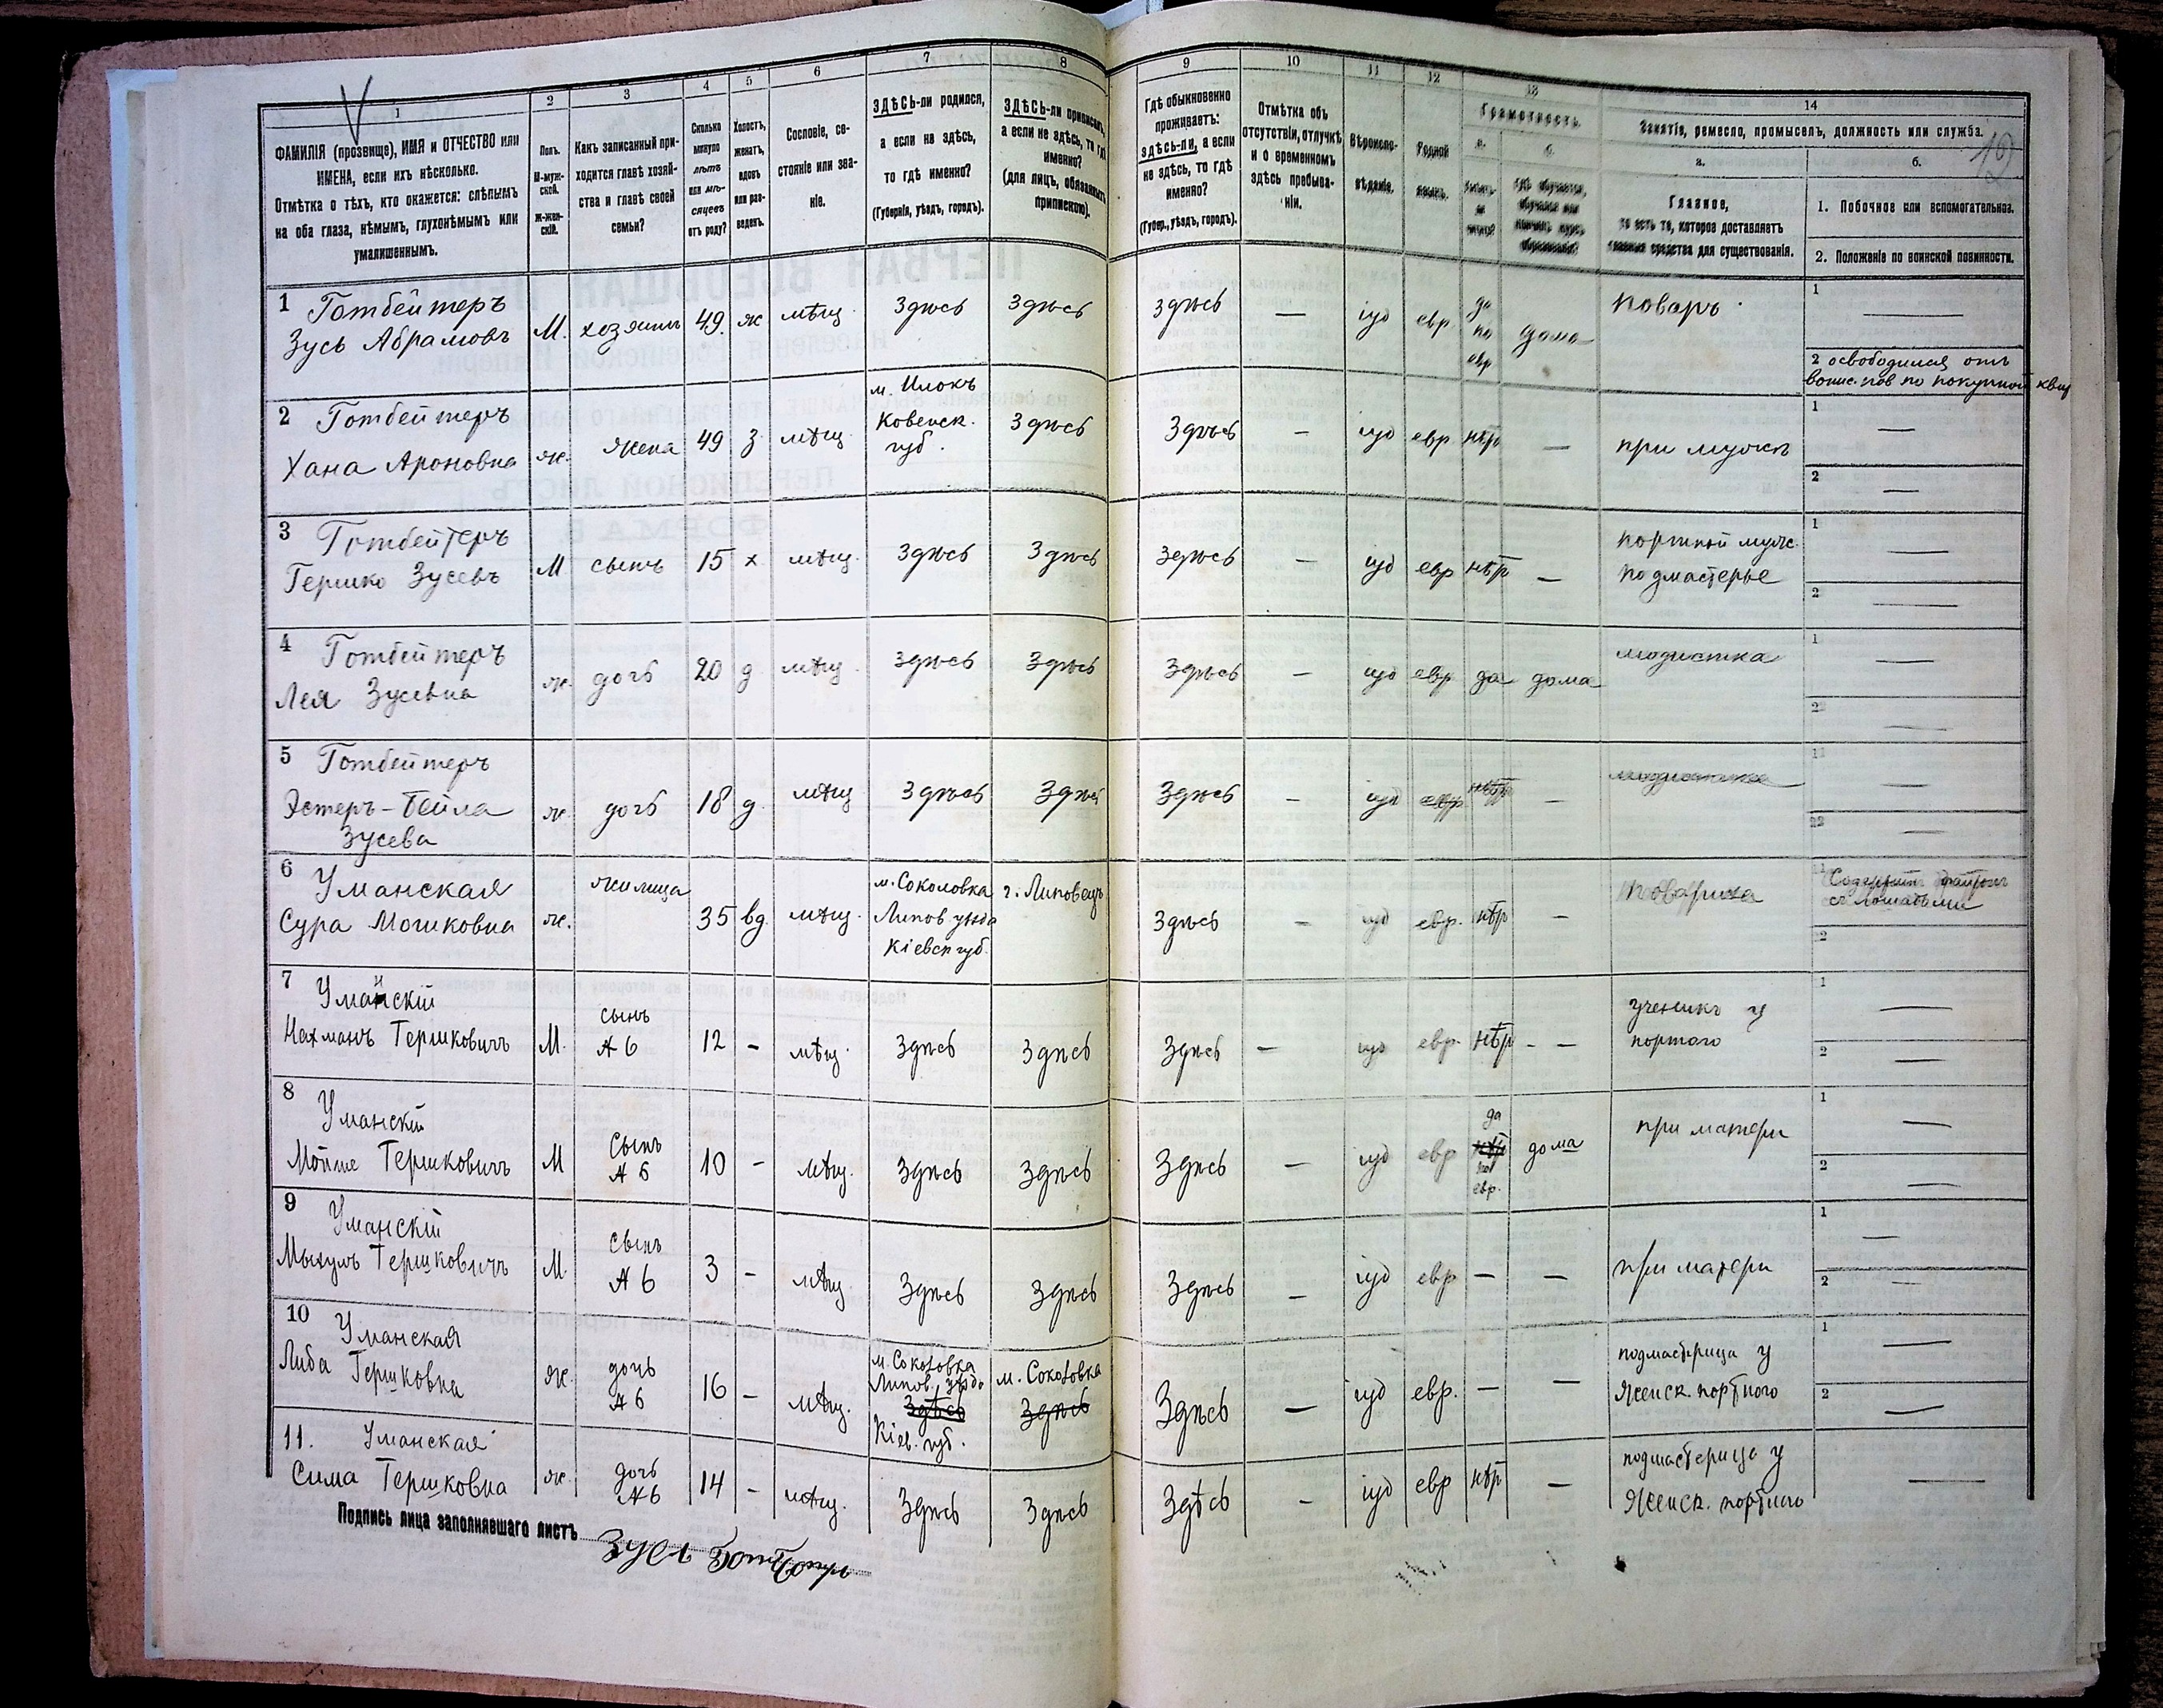 1
2
3
4
5
6
7
8
9
10
11
12
13
14
ФАМИЛІЯ (прозвище), ИМЯ и ОТЧЕСТВО или
ИМЕНА, если ихъ нѣсколько.
Отмѣтка о тѣхъ, кто окажется: слѣпымъ
на оба глаза, нѣмымъ, глухонѣмымъ или
умалишеннымъ.
Полъ.
М-муж-
ской.
Ж-жен-
скій.
Какъ записанный при-
ходится главѣ хозяй-
ства и главѣ своей
семьи?
Сколько
минуло
лѣтъ
или мѣ-
сяцевъ
отъ роду?
Холостъ,
женатъ,
вдовъ
или раз-
веденъ.
Сословіе, со-
стояніе или зва-
ніе.
ЗДѢСЬ-ли родился,
а если не здѣсь,
то гдѣ именно?
(Губернія, уѣздъ, городъ).
ЗДѢСЬ-ли приписанъ,
а если не здѣсь, то гдѣ
именно?
(для лицъ, обязанныхъ
припискою).
Гдѣ обыкновенно
проживаетъ:
здѣсь-ли, а если
не здѣсь, то гдѣ
именно?
(Губер., уѣздъ, городъ).
Отмѣтка объ
отсутствіи, отлучкѣ
и о временномъ
здѣсь пребыва-
ніи.
Вѣроиспо-
вѣданіе.
Родной
языкъ.
Грамотность.
а.
б.
Занятіе, ремесло, промыселъ, должность или служба.
12
а.
Главное,
то есть то, которое доставляетъ
главныя средства для существованія.
б.
1. Побочное или вспомогательное.
2. Положеніе по воинской повинности.
1 Готбейтеръ
Зусь Абрамовъ М. хозяинъ 49. ж мѣщ. Здѣсь Здѣсь Здѣсь — іуд евр да по евр дома поваръ 1 —
2 освобожденъ отъ
2 Готбейтеръ
Хана Ароновна ж. жена 49 З мѣщ. м. Илокъ Ковенск. губ. Здѣсь Здѣсь — іуд евр нѣтъ — при мужѣ 1 — 2 —
3 Готбейтеръ
Гершко Зусевъ М сынъ 15 х мѣщ. Здѣсь Здѣсь Здѣсь — іуд евр нѣтъ — портной муж. подмастерье 1 — 2 —
4 Готбейтеръ
Лея Зусевна ж. дочь 20 д мѣщ. Здѣсь Здѣсь Здѣсь — іуд евр да дома модистка 1 — 2 —
5 Готбейтеръ
Эстеръ-Бейла
Зусева ж. дочь 18 д. мѣщ Здѣсь Здѣсь Здѣсь — іуд евр нѣтъ — модистка 1 — 2 —
6 Уманская
Сура Мошковна ж. жилица 35 вд. мѣщ. м. Соколовка Липов. уѣзда Кіевск губ. г. Липовецъ Здѣсь — іуд евр. нѣтъ — повариха 1 Содержитъ фаэтонъ съ лошадьми
2
7 Уманскій
Нахманъ Гершковичъ М. сынъ № 6 12 - мѣщ. Здѣсь Здѣсь Здѣсь — іуд евр. нѣтъ - - ученикъ у портного 1 — 2 —
8 Уманскій
Мойше Гершковичъ М Сынъ № 6 10 - мѣщ. Здѣсь Здѣсь Здѣсь — іуд евр да нѣтъ по евр. дома при матери 1 — 2 —
9 Уманскій
Мыхуль Гершковичъ М. сынъ № 6 3 - мѣщ. Здѣсь Здѣсь Здѣсь — іуд евр — — при матери 1 — 2 —
10 Уманская
Либа Гершковна ж. дочь № 6 16 - мѣщ. м. Соколовка Липов. уѣзда Здѣсь Кіев. губ. м. Соколовка Здѣсь Здѣсь — іуд евр. — — подмастрица у Женск. портного 1 — 2 —
11. Уманская
Сима Гершковна ж. дочь № 6 14 - мѣщ. Здѣсь Здѣсь Здѣсь — іуд евр нѣтъ — подмастерица у Женск. портного —
Подпись лица заполнявшаго листъ